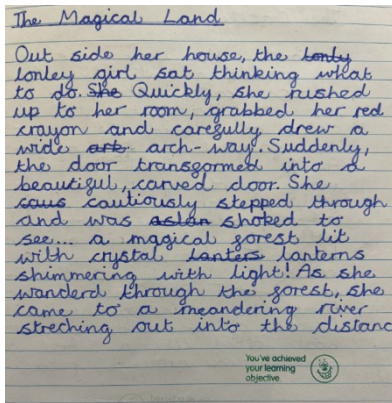 The Magical Land
Out side her house, the lonly
lonley girl sat thinking what
to do. She Quickly, she rushed
up to her room, grabbed her red
crayon and carefully drew a
wide ark arch-way. Suddenly,
the door transformed into a
beautiful, carved door. She
caus cautiously stepped through
and was aslan shoked to
see... a magical forest lit
with crystal lanters lanterns
shimmering with light! As she
wanderd through the forest, she
came to a meandering river
streching out into the distanc
You've achieved
your learning
objective